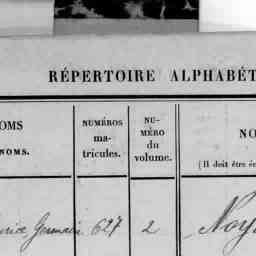 RÉPERTOIRE ALPHABÉT
OMS
NOMS.
NUMÉROS
ma-
tricules.
NU-
MÉRO
du
volume.
NO
(Il doit être éc
Germain 627
2
Noy